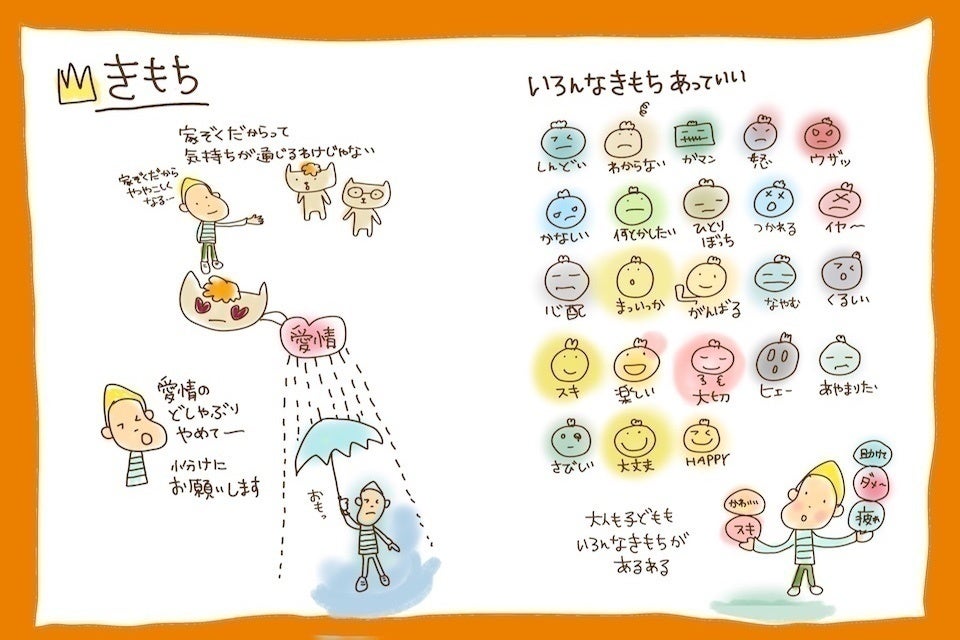 きもち
家ぞくだからって
気持ちが通じるわけじゃない
家ぞくだから
ややこしく
なる…
愛情
愛情の
どしゃぶり
やめてー
小分けに
お願いします
おもっ
いろんなきもち あっていい
しんどい
わからない
ガマン
怒
ウザッ
かなしい
何とかしたい
ひとり
ぼっち
つかれる
イヤ〜
心配
まっいっか
がんばる
なやむ
くるしい
スキ
楽しい
大切
ヒェー
あやまりたい
さびしい
大丈夫
HAPPY
大人も子どもも
いろんなきもちが
あるある
かわいい
スキ
助けて
ダメ〜
疲れ